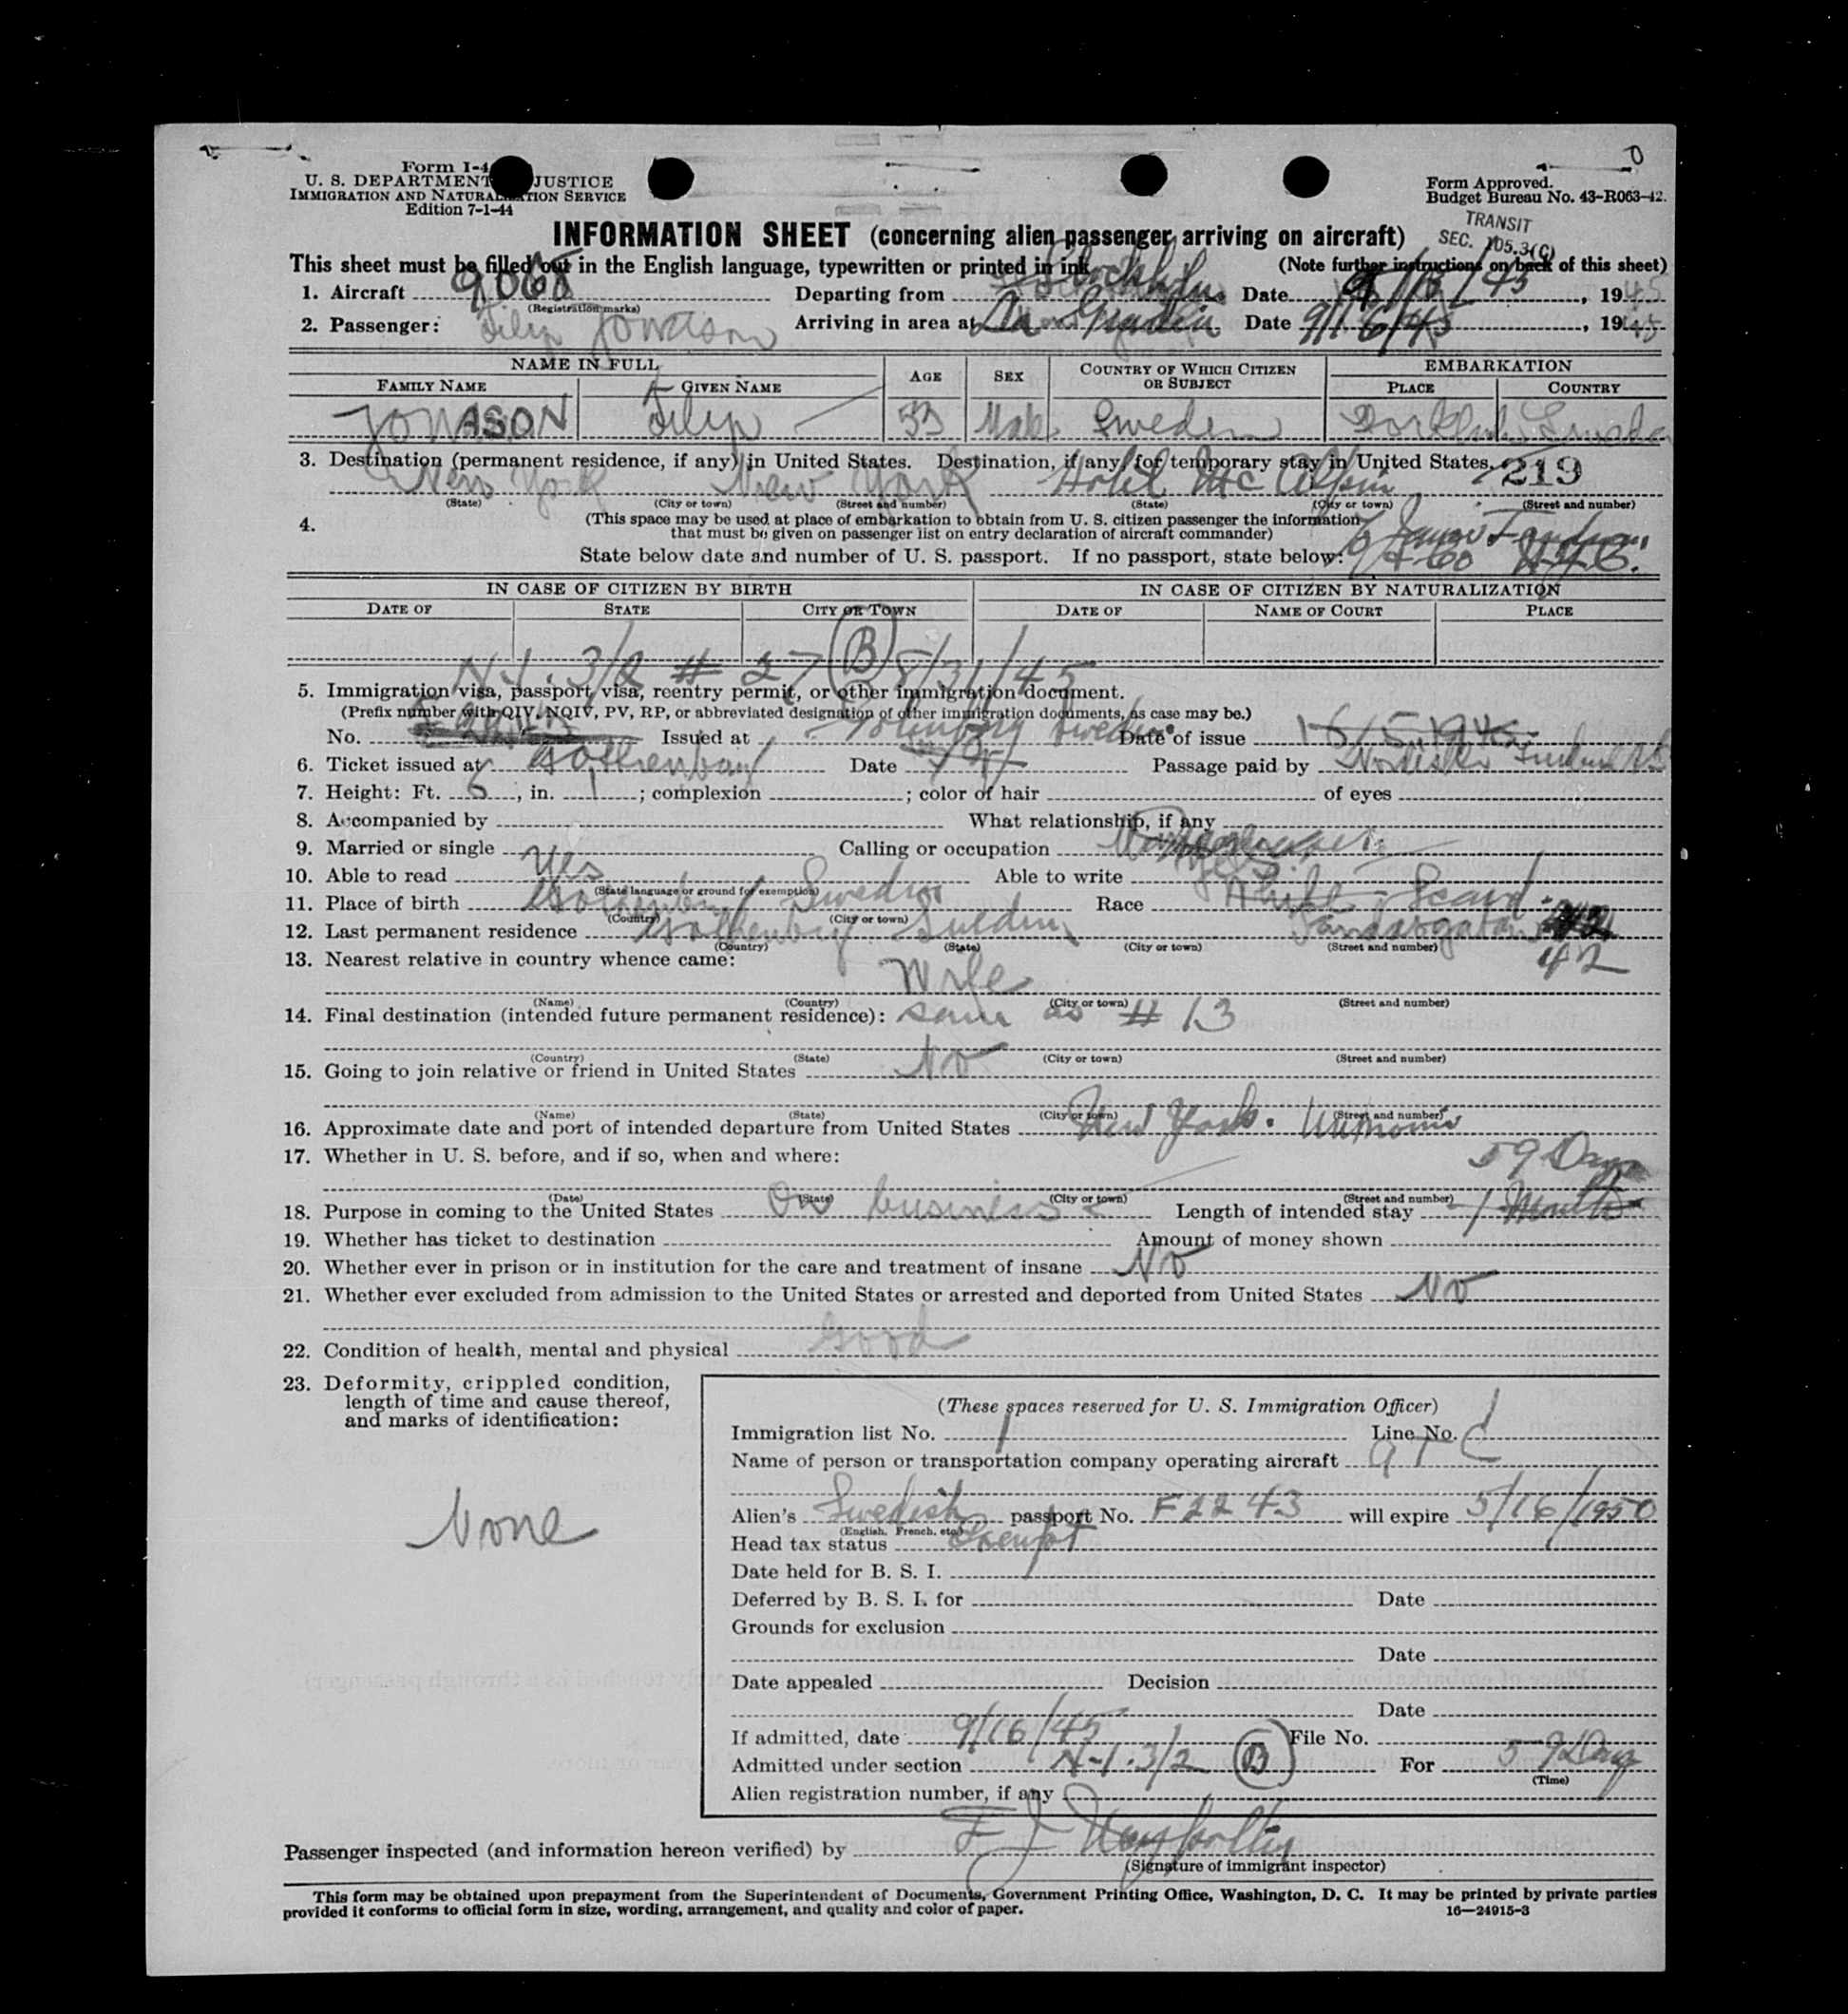 Form I-4
U. S. DEPARTMENT JUSTICE
IMMIGRATION AND NATURALIZATION SERVICE
Edition 7-1-44
Form Approved.
Budget Bureau No. 43-R063-42.
TRANSIT
SEC. 105.3(C)
INFORMATION SHEET (concerning alien passenger arriving on aircraft)
This sheet must be filled out in the English language, typewritten or printed in ink (Note further instructions on back of this sheet)
1. Aircraft 9068 Departing from Date , 1945
(Registration marks)
2. Passenger: Filip Jonason Arriving in area at La Guardia Date 9/16/45, 1945
NAME IN FULL AGE SEX COUNTRY OF WHICH CITIZEN OR SUBJECT EMBARKATION
FAMILY NAME GIVEN NAME PLACE COUNTRY
JONASON Filip 53 Male Sweden Sweden
3. Destination (permanent residence, if any) in United States. Destination, if any, for temporary stay in United States. 219
New York New York Hotel Mc Alpin
(State) (City or town) (Street and number) (State) (City or town) (Street and number)
4. (This space may be used at place of embarkation to obtain from U. S. citizen passenger the information
that must be given on passenger list on entry declaration of aircraft commander)
State below date and number of U. S. passport. If no passport, state below:
IN CASE OF CITIZEN BY BIRTH IN CASE OF CITIZEN BY NATURALIZATION
DATE OF STATE CITY OR TOWN DATE OF NAME OF COURT PLACE
N-1. 3/2 # 27 (B) 8/31/45
5. Immigration visa, passport visa, reentry permit, or other immigration document.
(Prefix number with QIV, NQIV, PV, RP, or abbreviated designation of other immigration documents, as case may be.)
No. Issued at Sweden Date of issue
6. Ticket issued at Gothenburg Date Passage paid by
7. Height: Ft. 6, in. 1; complexion ; color of hair of eyes
8. Accompanied by What relationship, if any
9. Married or single Calling or occupation
10. Able to read Yes Able to write Yes
(State language or ground for exemption)
11. Place of birth Sweden Race White - Scand.
(Country) (City or town)
12. Last permanent residence Gothenburg Sweden
(Country) (State) (City or town) (Street and number)
42
13. Nearest relative in country whence came: Wife
(Name) (Country) (City or town) (Street and number)
14. Final destination (intended future permanent residence): same as # 13
(Country) (State) (City or town) (Street and number)
15. Going to join relative or friend in United States No
(Name) (State) (City or town) (Street and number)
16. Approximate date and port of intended departure from United States New York.
17. Whether in U. S. before, and if so, when and where:
59 Days
(Date) (State) (City or town) (Street and number)
18. Purpose in coming to the United States On business Length of intended stay 1 Month
19. Whether has ticket to destination Amount of money shown
20. Whether ever in prison or in institution for the care and treatment of insane No
21. Whether ever excluded from admission to the United States or arrested and deported from United States No
22. Condition of health, mental and physical Good
23. Deformity, crippled condition,
length of time and cause thereof,
and marks of identification:
None
(These spaces reserved for U. S. Immigration Officer)
Immigration list No. 1 Line No. 1
Name of person or transportation company operating aircraft ATC
Alien's Swedish passport No. F2243 will expire 5/16/1950
(English, French, etc.)
Head tax status Exempt
Date held for B. S. I.
Deferred by B. S. I. for Date
Grounds for exclusion
Date
Date appealed Decision
Date
If admitted, date 9/16/45 File No.
Admitted under section N-1.3/2 (B) For 59 Days
(Time)
Alien registration number, if any
Passenger inspected (and information hereon verified) by
(Signature of immigrant inspector)
This form may be obtained upon prepayment from the Superintendent of Documents, Government Printing Office, Washington, D. C. It may be printed by private parties
provided it conforms to official form in size, wording, arrangement, and quality and color of paper. 16—24915-3